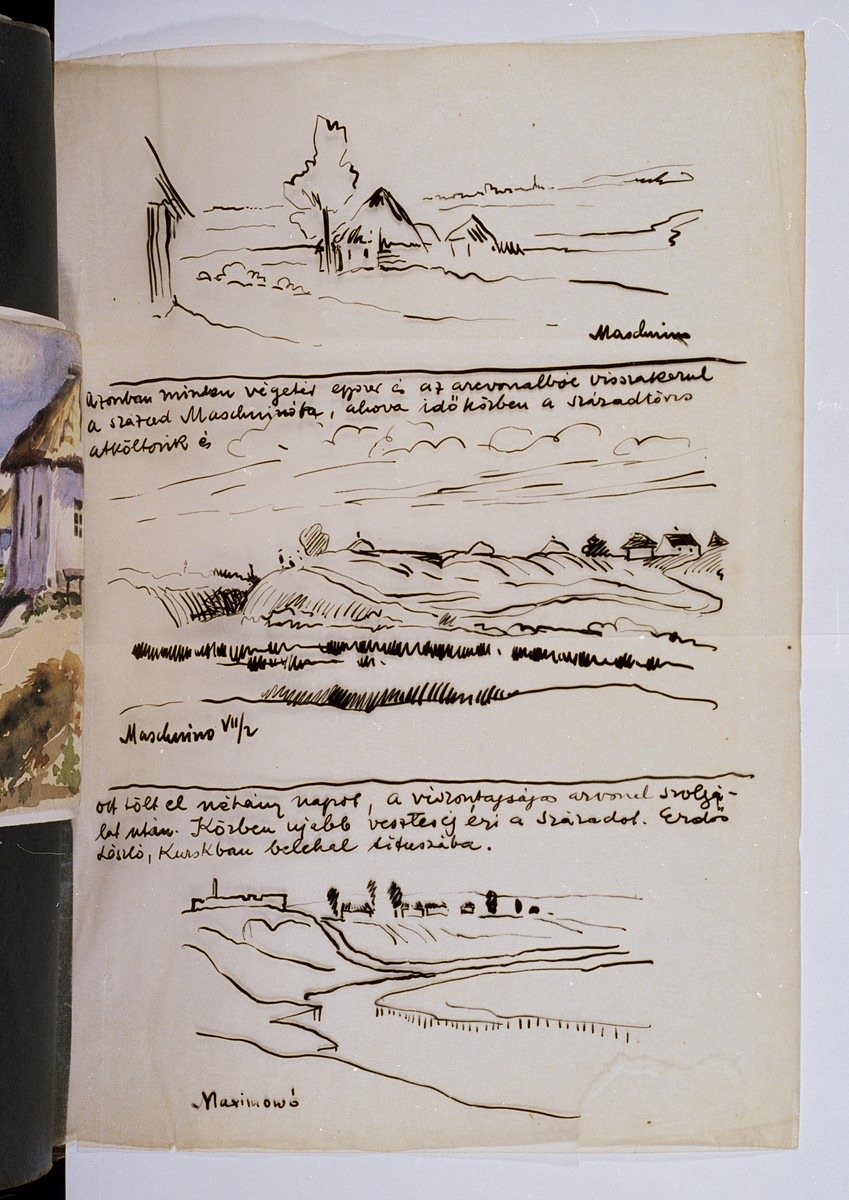 Maschnino
Azonban minden végetér egyszer és az arcvonalból visszakerül
a század Maschninóba, ahova időközben a századtörzs
átköltözik és
Maschnino VII/2
ott tölt el néhány napot, a viszontagságos arcvonal szolgá-
lat után. Közben ujabb veszteség éri a századot. Erdős
László, Kurskban belehal tífuszába.
Maximowó